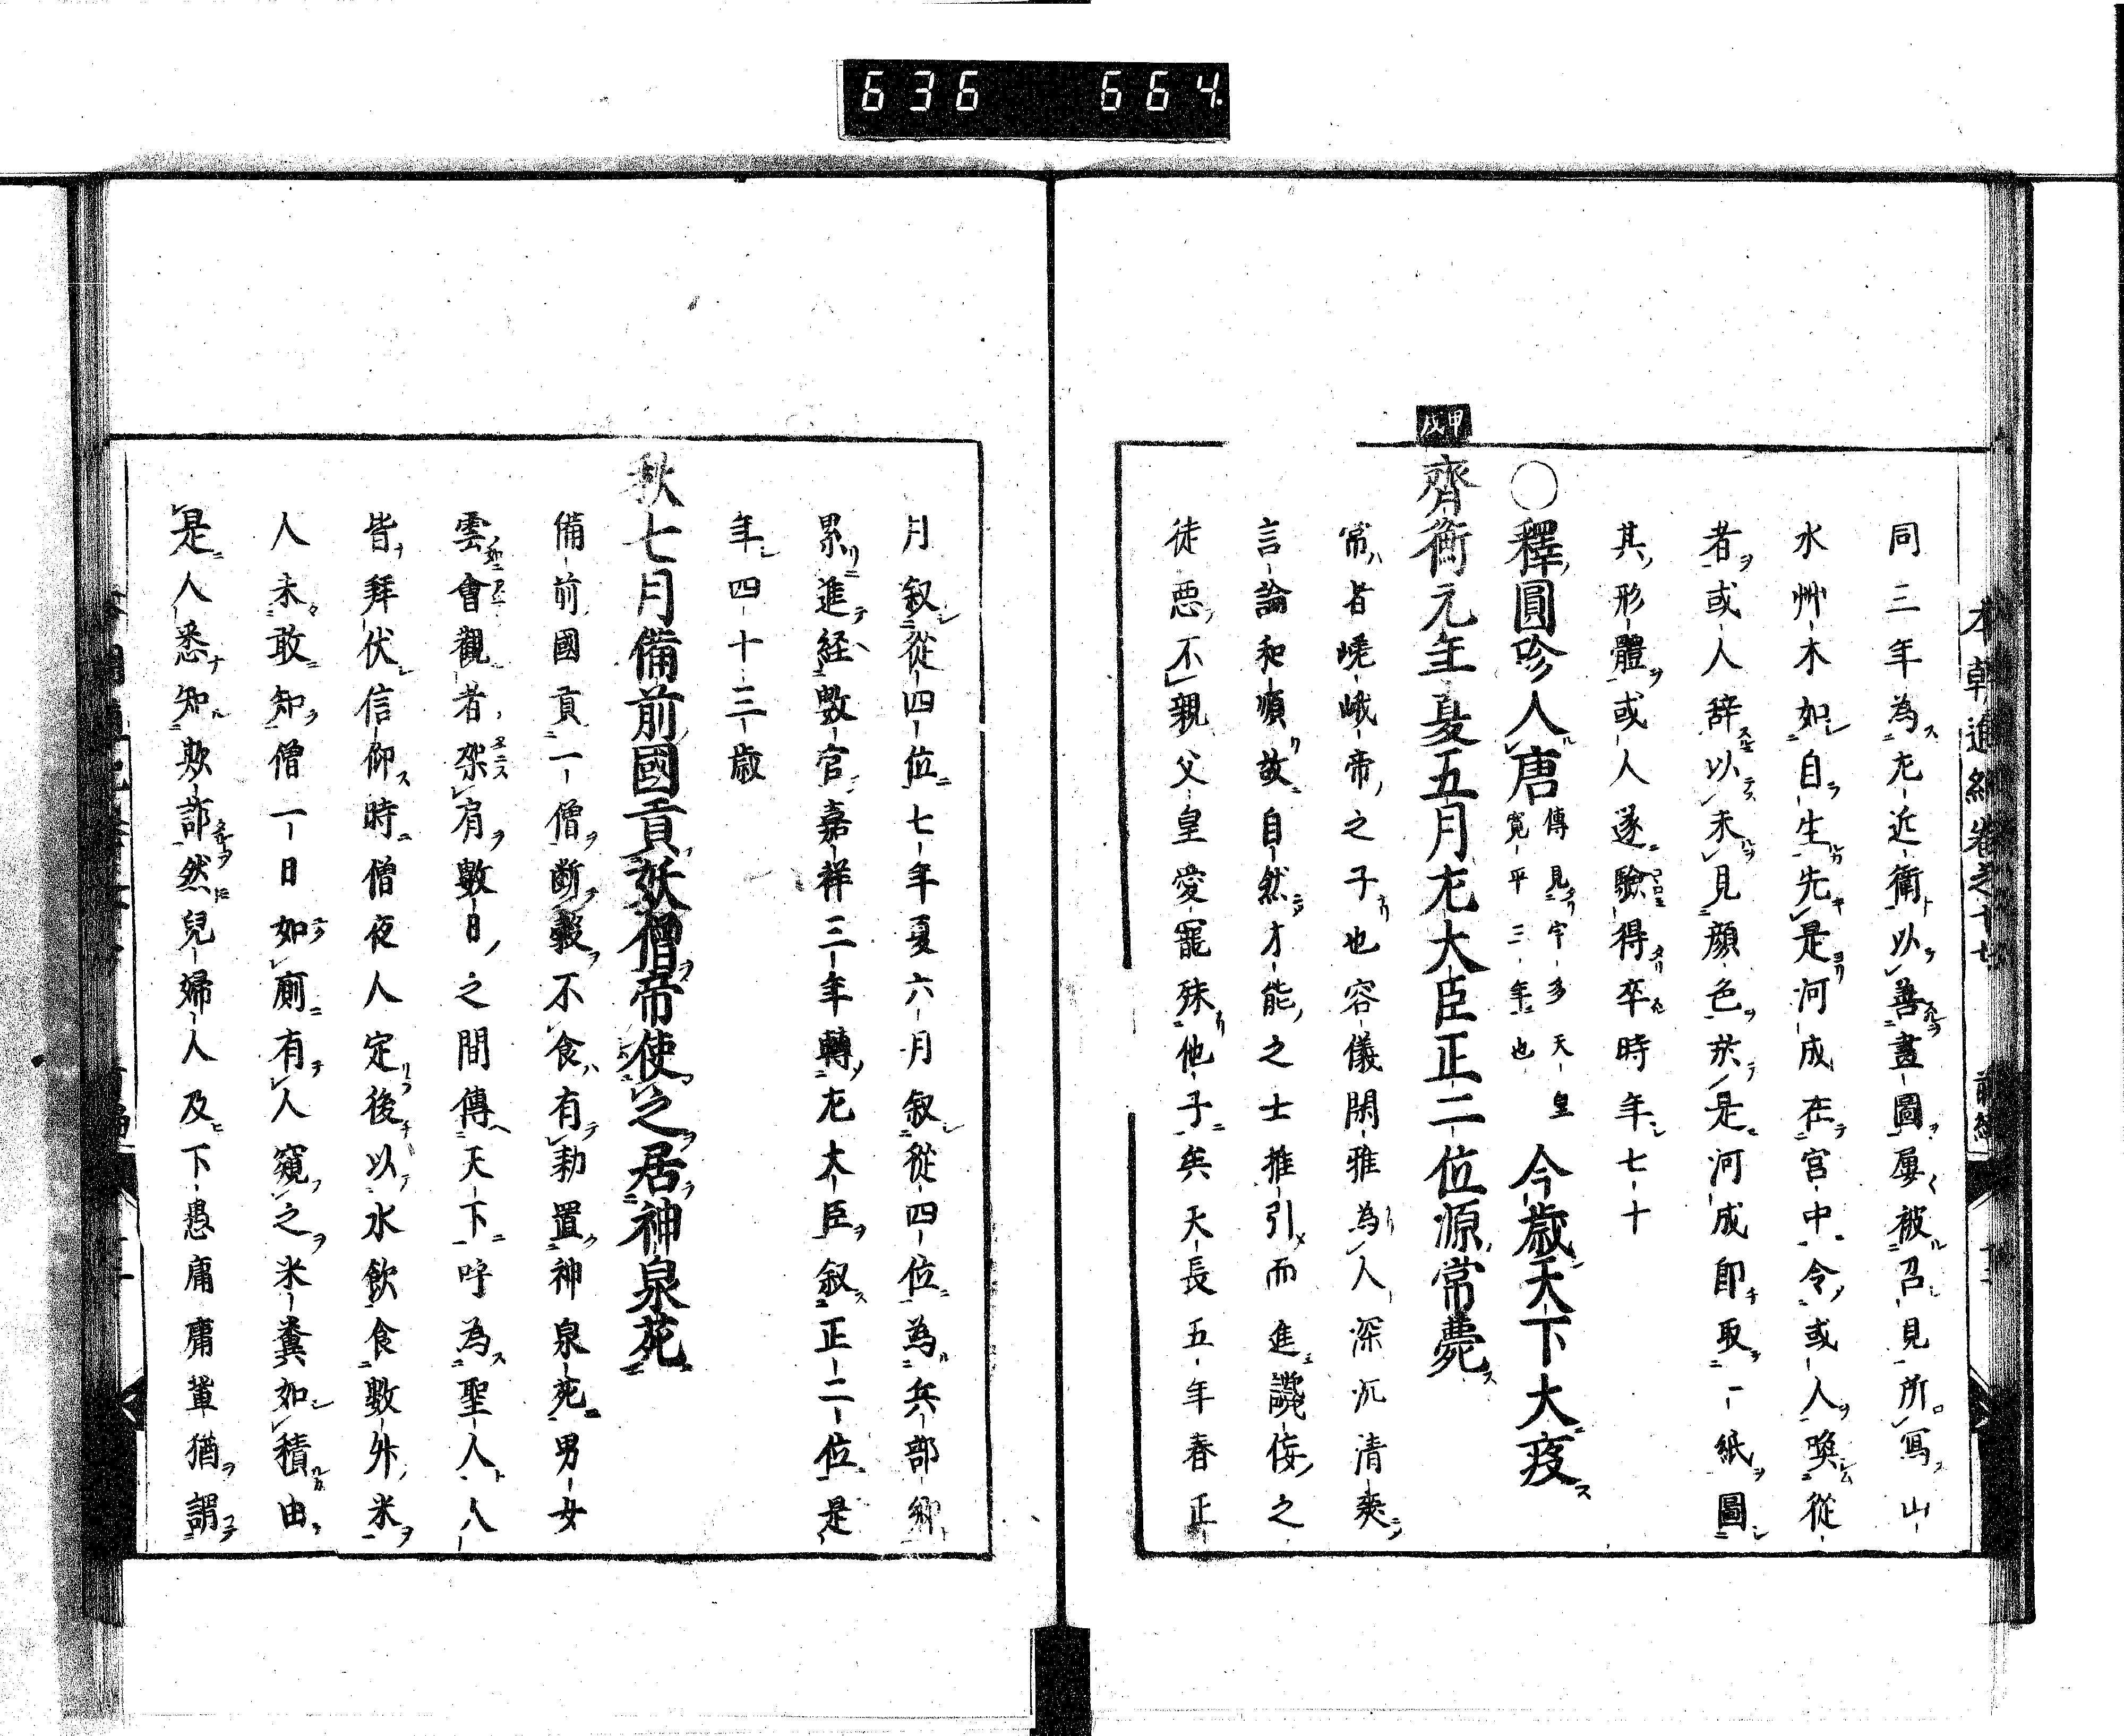 636 664
同三年為左近衛以善畫圖屢被召見所寫山
水艸木如自生先是河成在宮中令或人喚從
者或人辞以未見顔色於是河成即取一紙圖
其形體或人遂驗得卒時年七十
○釋圓珍入唐傳見宇多天皇寛平三年也今歳天下大疫
甲戌
齊衡元年夏五月左大臣正二位源常薨
常者嵯峨帝之子也容儀閑雅為人深沉清爽
言論和順故自然才能之士推引而進讒佞之
徒悪不親父皇愛寵殊他子矣天長五年春正
月叙從四位七年夏六月叙從四位為兵部卿
累進経數官嘉祥三年轉左大臣叙正二位是
年四十三歳
秋七月備前國貢妖僧帝使之居神泉苑
備前國貢一僧断穀不食有勅置神泉苑男女
雲會觀者架肩數日之間傳天下呼為聖人人
皆拜伏信仰時僧夜人定後以水飲食數升米
人未敢知僧一日如廁有人窺之米糞如積由
是人悉知欺詐然兒婦人及下愚庸庸輩猶謂